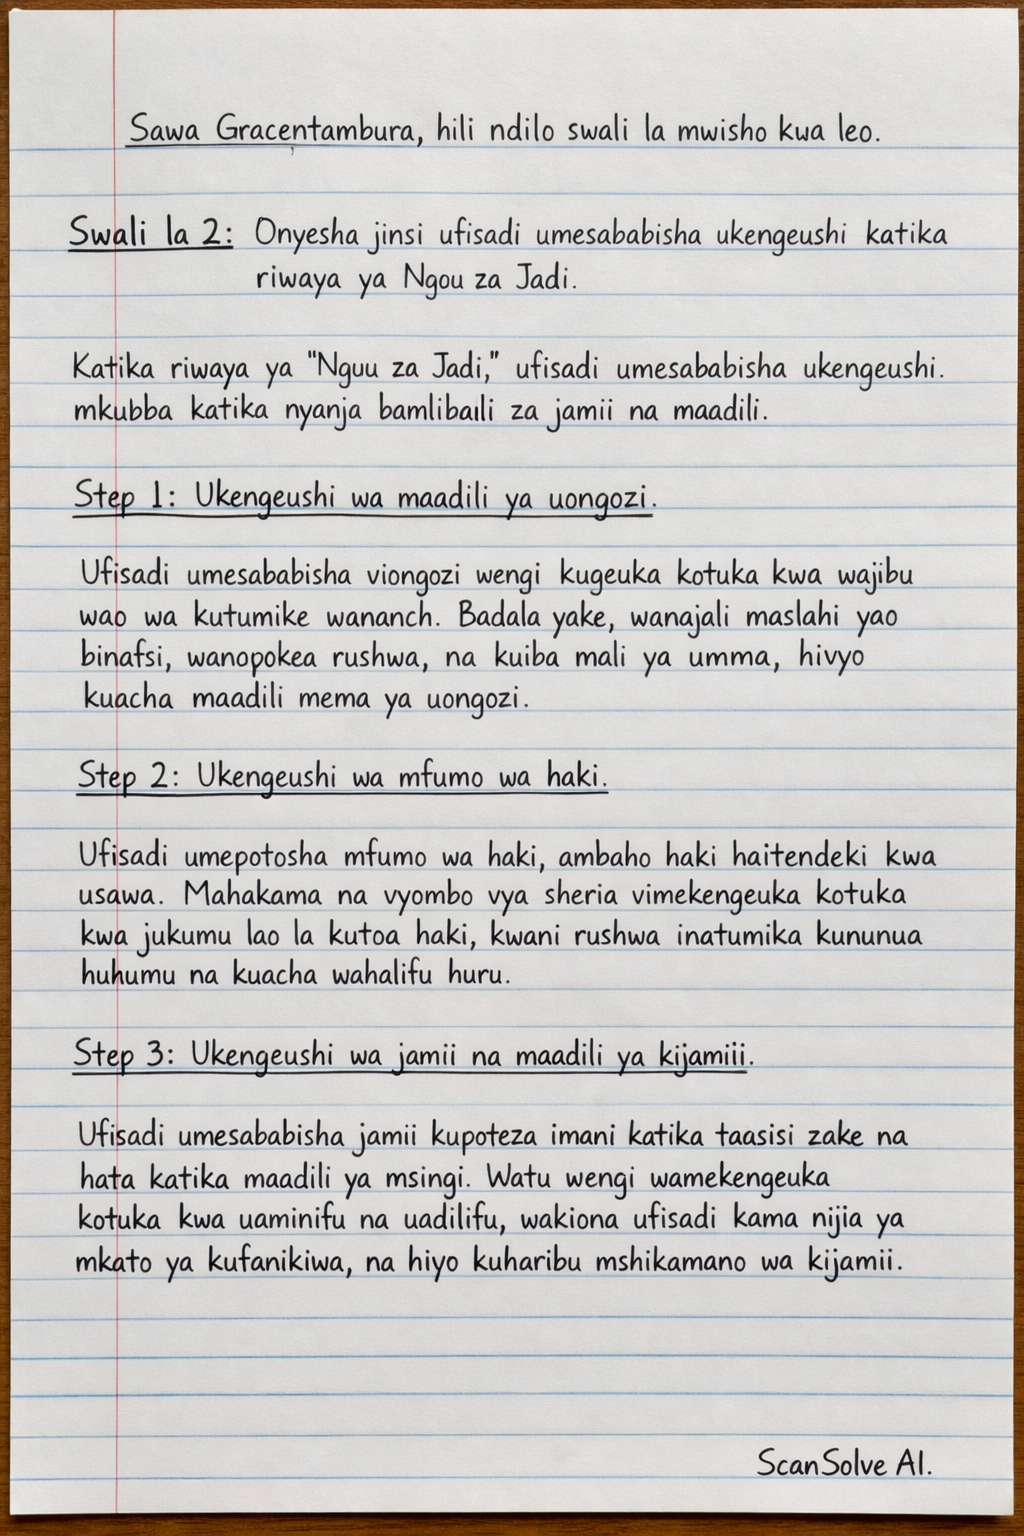 Sawa Gracentambura, hili ndilo swali la mwisho kwa leo.
Swali la 2: Onyesha jinsi ufisadi umesababisha ukengeushi katika
riwaya ya Ngou za Jadi.
Katika riwaya ya "Nguu za Jadi," ufisadi umesababisha ukengeushi.
mkubba katika nyanja bamlibaili za jamii na maadili.
Step 1: Ukengeushi wa maadili ya uongozi.
Ufisadi umesababisha viongozi wengi kugeuka kotuka kwa wajibu
wao wa kutumike wananch. Badala yake, wanajali maslahi yao
binafsi, wanopokea rushwa, na kuiba mali ya umma, hivyo
kuacha maadili mema ya uongozi.
Step 2: Ukengeushi wa mfumo wa haki.
Ufisadi umepotosha mfumo wa haki, ambaho haki haitendeki kwa
usawa. Mahakama na vyombo vya sheria vimekengeuka kotuka
kwa jukumu lao la kutoa haki, kwani rushwa inatumika kununua
huhumu na kuacha wahalifu huru.
Step 3: Ukengeushi wa jamii na maadili ya kijamiii.
Ufisadi umesababisha jamii kupoteza imani katika taasisi zake na
hata katika maadili ya msingi. Watu wengi wamekengeuka
kotuka kwa uaminifu na uadilifu, wakiona ufisadi kama nijia ya
mkato ya kufanikiwa, na hiyo kuharibu mshikamano wa kijamii.
ScanSolve AI.